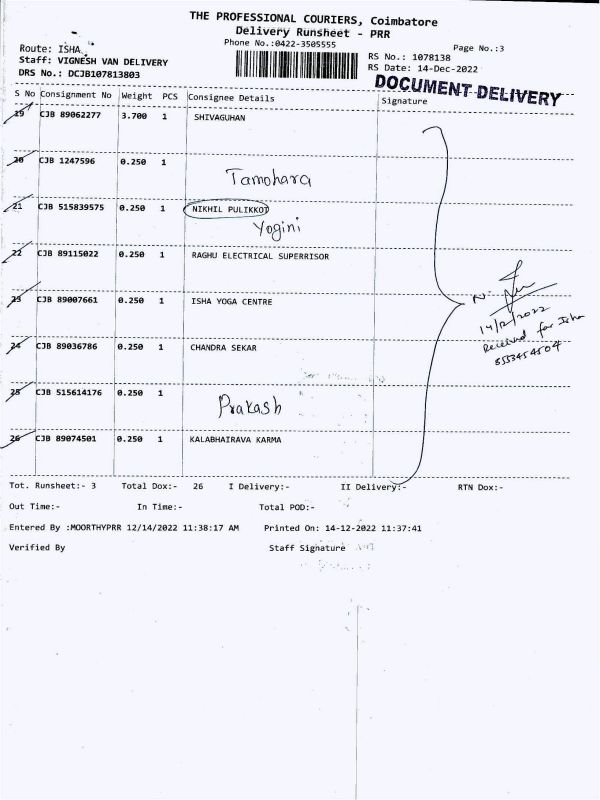 THE PROFESSIONAL COURIERS, Coimbatore
Delivery Runsheet - PRR
Phone No.:0422-3505555
Page No.:3
Route: ISHA
RS No.: 1078138
Staff: VIGNESH VAN DELIVERY
RS Date: 14-Dec-2022
DRS No.: DCJB107813803
DOCUMENT DELIVERY
S No Consignment No Weight PCS Consignee Details Signature
19 CJB 89062277 3.700 1 SHIVAGUHAN
20 CJB 1247596 0.250 1
Tamohara
21 CJB 515839575 0.250 1 NIKHIL PULIKKOT
Yogini
22 CJB 89115022 0.250 1 RAGHU ELECTRICAL SUPERRISOR
23 CJB 89007661 0.250 1 ISHA YOGA CENTRE
14/12/2022
Received for Isha
8553454504
24 CJB 89036786 0.250 1 CHANDRA SEKAR
25 CJB 515614176 0.250 1
Prakash
26 CJB 89074501 0.250 1 KALABHAIRAVA KARMA
Tot. Runsheet:- 3 Total Dox:- 26 I Delivery:- II Delivery:- RTN Dox:-
Out Time:- In Time:- Total POD:-
Entered By :MOORTHYPRR 12/14/2022 11:38:17 AM Printed On: 14-12-2022 11:37:41
Verified By Staff Signature